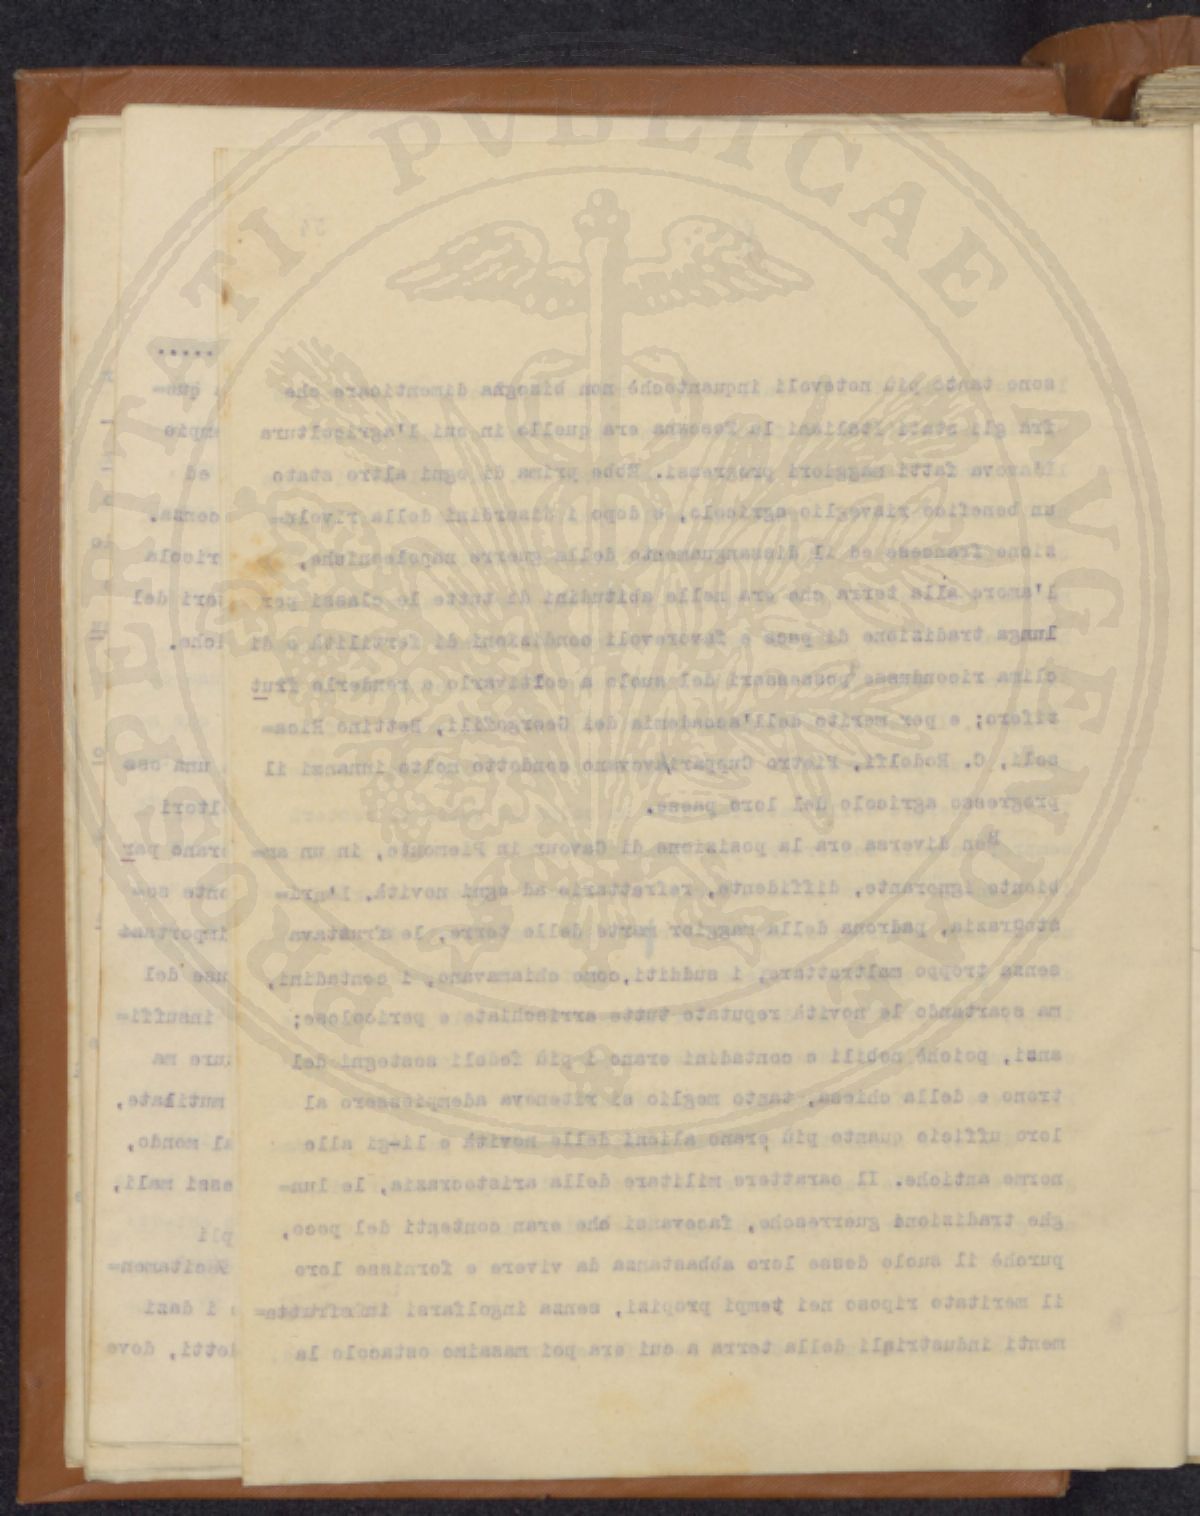 PROSPERITATI PVBLICAE AVGENDAE
54
sono tanto più notevoli inquantochè non bisogna dimenticare che
fra gli stati Italiani la Toscana era quella in cui l'agricoltura
faceva fatti maggiori progressi. Ebbe prima di ogni altro stato
un benefico risveglio agricolo, e dopo i disordini della rivolu-
zione francese ed il dissanguamento delle guerre napoleoniche,
l'amore alla terra che era nelle abitudini di tutte le classi per
lunga tradizione di pace e favorevoli condizioni di fertilità e di
clima ricondusse possessori del suolo a coltivarlo e renderlo frut
tifero; e per merito dell'accademia dei Georgofili, Bettino Rica-
soli, C. Ridolfi, Pietro Cuppari, avevano condotto molto innanzi il
progresso agricolo del loro paese.
Ben diversa era la posizione di Cavour in Piemonte, in un am-
biente ignorante, diffidente, refrattario ad ogni novità. L'ari-
stocrazia, padrona della maggior parte delle terre, le sfruttava
senza troppo maltrattare, i sudditi, come chiamavano, i contadini,
ma scartando le novità reputate tutte arrischiate e pericolose;
anzi, poichè nobili e contadini erano i più fedeli sostegni del
trono e della chiesa, tanto meglio si riteneva adempiessero al
loro ufficio quanto più erano alieni delle novità e ligi alle
norme antiche. Il carattere militare della aristocrazia, le lun-
ghe tradizioni guerresche, facevansi che eran contenti del poco,
purchè il suolo desse loro abbastanza da vivere e fornisse loro
il meritato riposo nei tempi propizi, senza ingolfarsi in sfrutta-
menti industriali della terra a cui era poi massimo ostacolo la
.....
qun-
empio
ed
cenza,
ricola
del
iche.
una
ltori
erano par
onte so-
importansi
use del
insuffi-
ture ma
mutilate,
al mondo,
essi mali,
citamen-
i dazi
dotti, dove